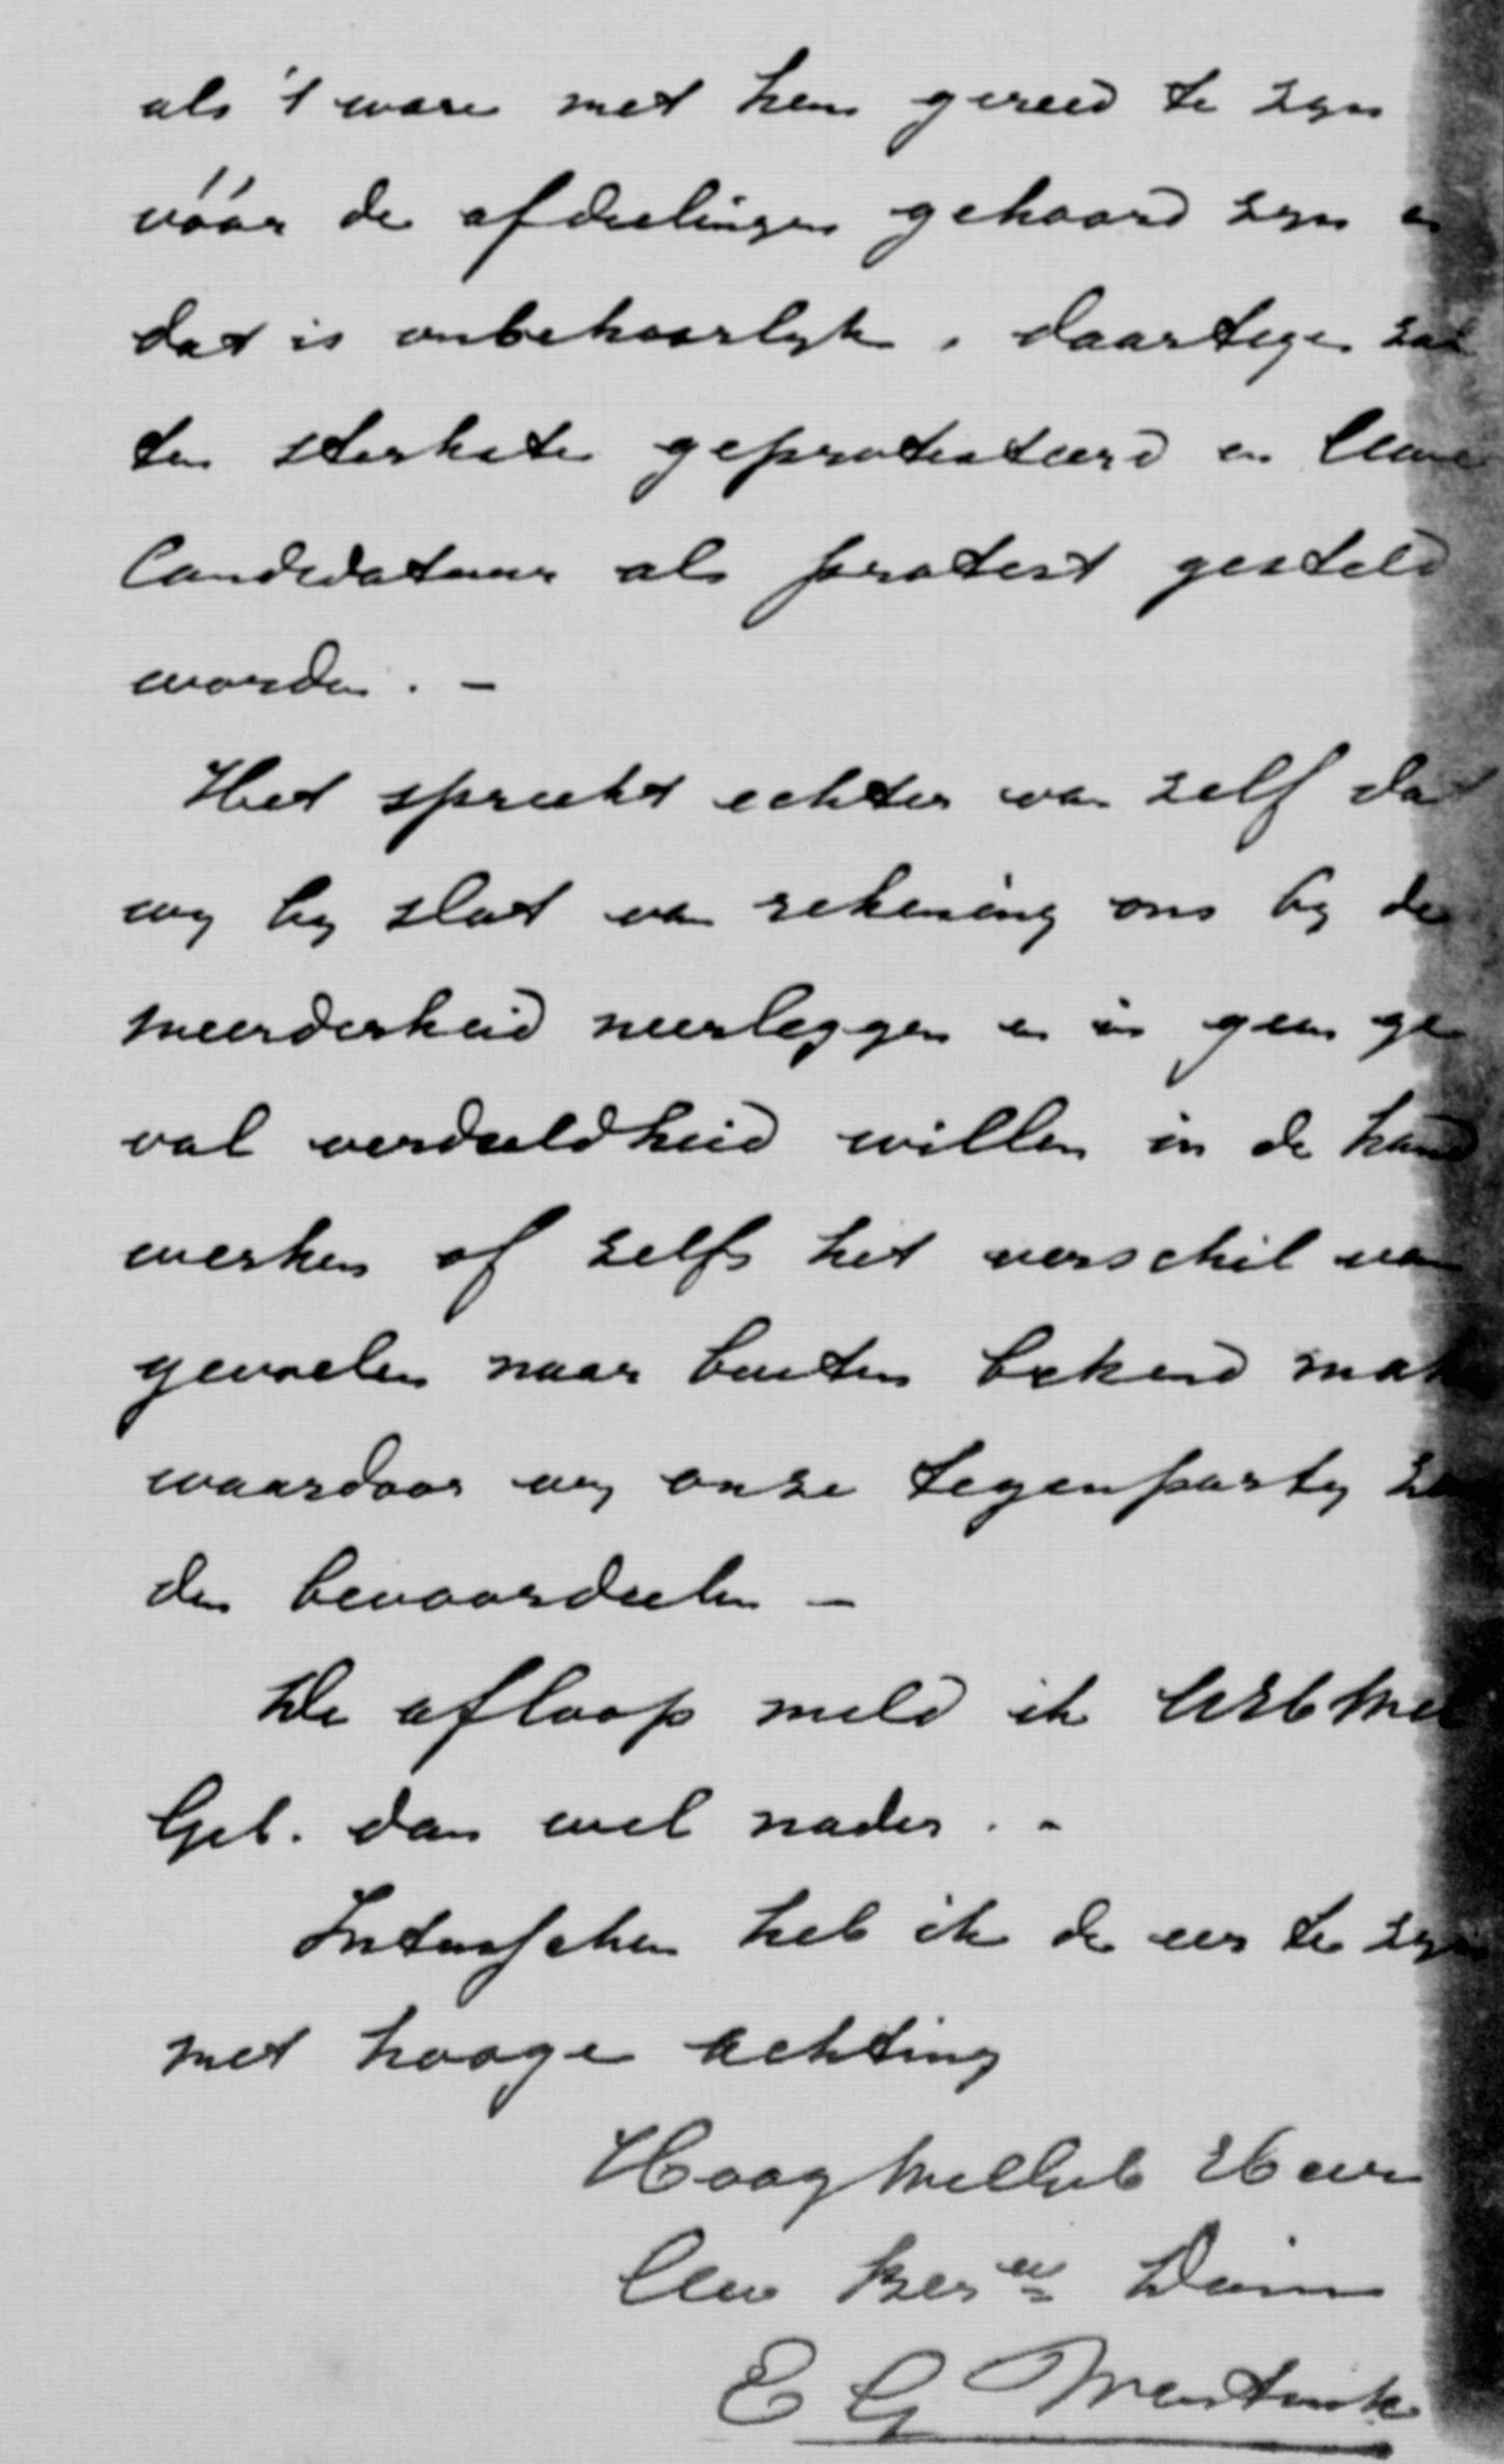 als 't ware met hem gereed te zijn
vóór de afdeelingen gehoord zijn en
dat is onbehoorlijk, daartegen zal
ten sterkste geprotesteerd en Uwe
Candidatuur als protest gesteld
worden. -
Het spreekt echter van zelf dat
wij bij slot van rekening ons bij de
meerderheid neerleggen en in geen ge
val verdeeldheid willen in de hand
werken of zelfs het verschil van
gevoelen naar buiten bekend maken
waardoor wij onze tegenpartij zou
den bevoordeelen -
De afloop meld ik UHEd Wel
Geb. dan wel nader. -
Intusschen heb ik de eer te zijn
met hooge achting
HoogWelGeb Heer
Uw Ber en Dien
E G Mentink